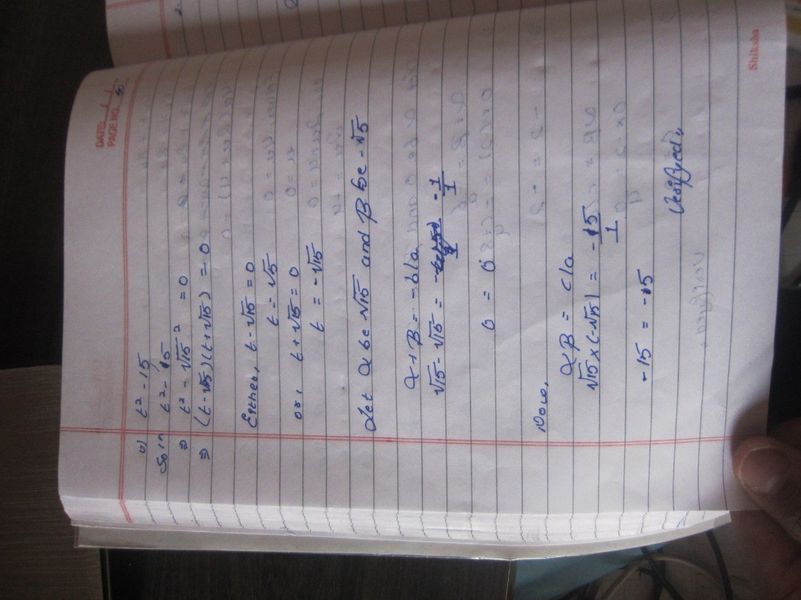 DATE / /
PAGE NO. 50
v) t² - 15
Soln t² - 15
⇒ t² - √15² = 0
⇒ (t-√15)(t+√15) = 0
Either, t-√15 = 0
t = √15
or, t+√15 = 0
t = -√15
Let α be √15 and β be -√15
α+β = -b/a
√15 - √15 = - 1/1
0 = 0
Now,
αβ = c/a
√15 × (-√15) = -15/1
-15 = -15
Verified,,
Shiksha